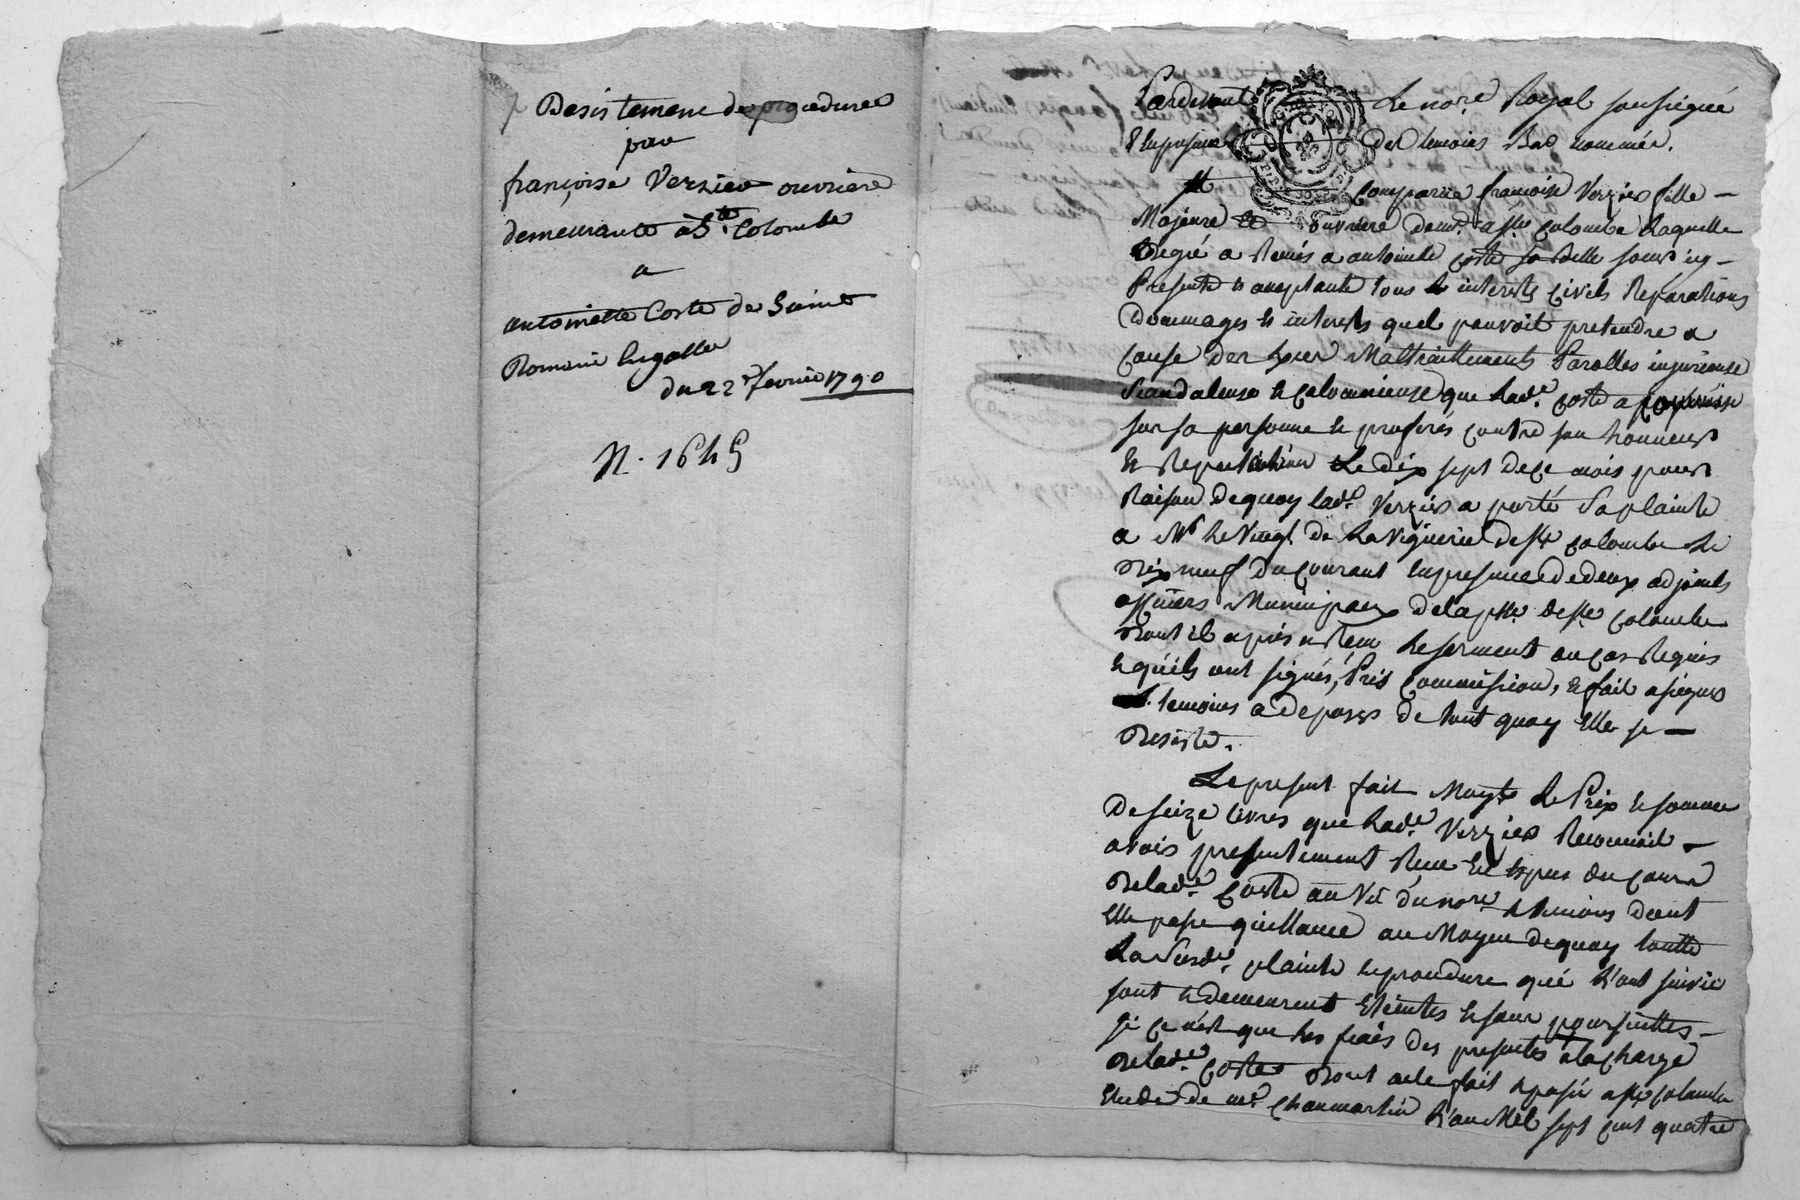 Desistement de procedure
par
françoise Verzier ouvriere
demeurante a Ste. Colombe
a
antoinette Coste de Saint
Romain
du 22 fevrier 1790
N. 1645
Pardevant Le nore Royal soussigné
Et en presence des temoins Bas nommés.
Comparüe francoise Verzier fille
Majeure ouvriere demt. a Ste colombe Laquelle
de gré a Remis a antoinette coste sa Belle soeur icy
Presente et aceptante tous interets Civils Reparations
Dommages et interets quel pouvoit pretendre a
Cause des Maltraittements Parolles injurieuse
Scandaleuse et Calomnieuse que lade. Coste a
sur sa personne et proferés contre son honneur
et Reputation Le dix sept de ce mois pour
Raison de quoy lade. Verzier a porté Sa plainte
a Mr de La Viguerie de Ste colombe Le
dix neuf du Courant en presence de deux adjoints
officiers Municipaux de la psse. de Ste colombe
dont il a pris et Recu Le serment au cas Requis
et qu'ils ont signés, Pris Commission, et fait asigner
temoins a deposer de tout quoy Elle se
Desiste.
Le present fait Moyt. Le Prix et somme
De seize livres que Lade. Verzier Reconnoit
avoir presentement Recu En espece du cours
de lade. Coste au Vu du nore. et temoins dont
Elle passe quittance au Moyen de quoy toutte
La Susde. plainte et procedure qui L'ont suivie
sont et demeurent Eteintes et sans poursuittes
si ce n'est que Les frais des presentes a la charge
de lade. Coste Dont acte fait et passé a Ste Colombe
Etude de me. Chaumartin L'an Mil sept cent quatre